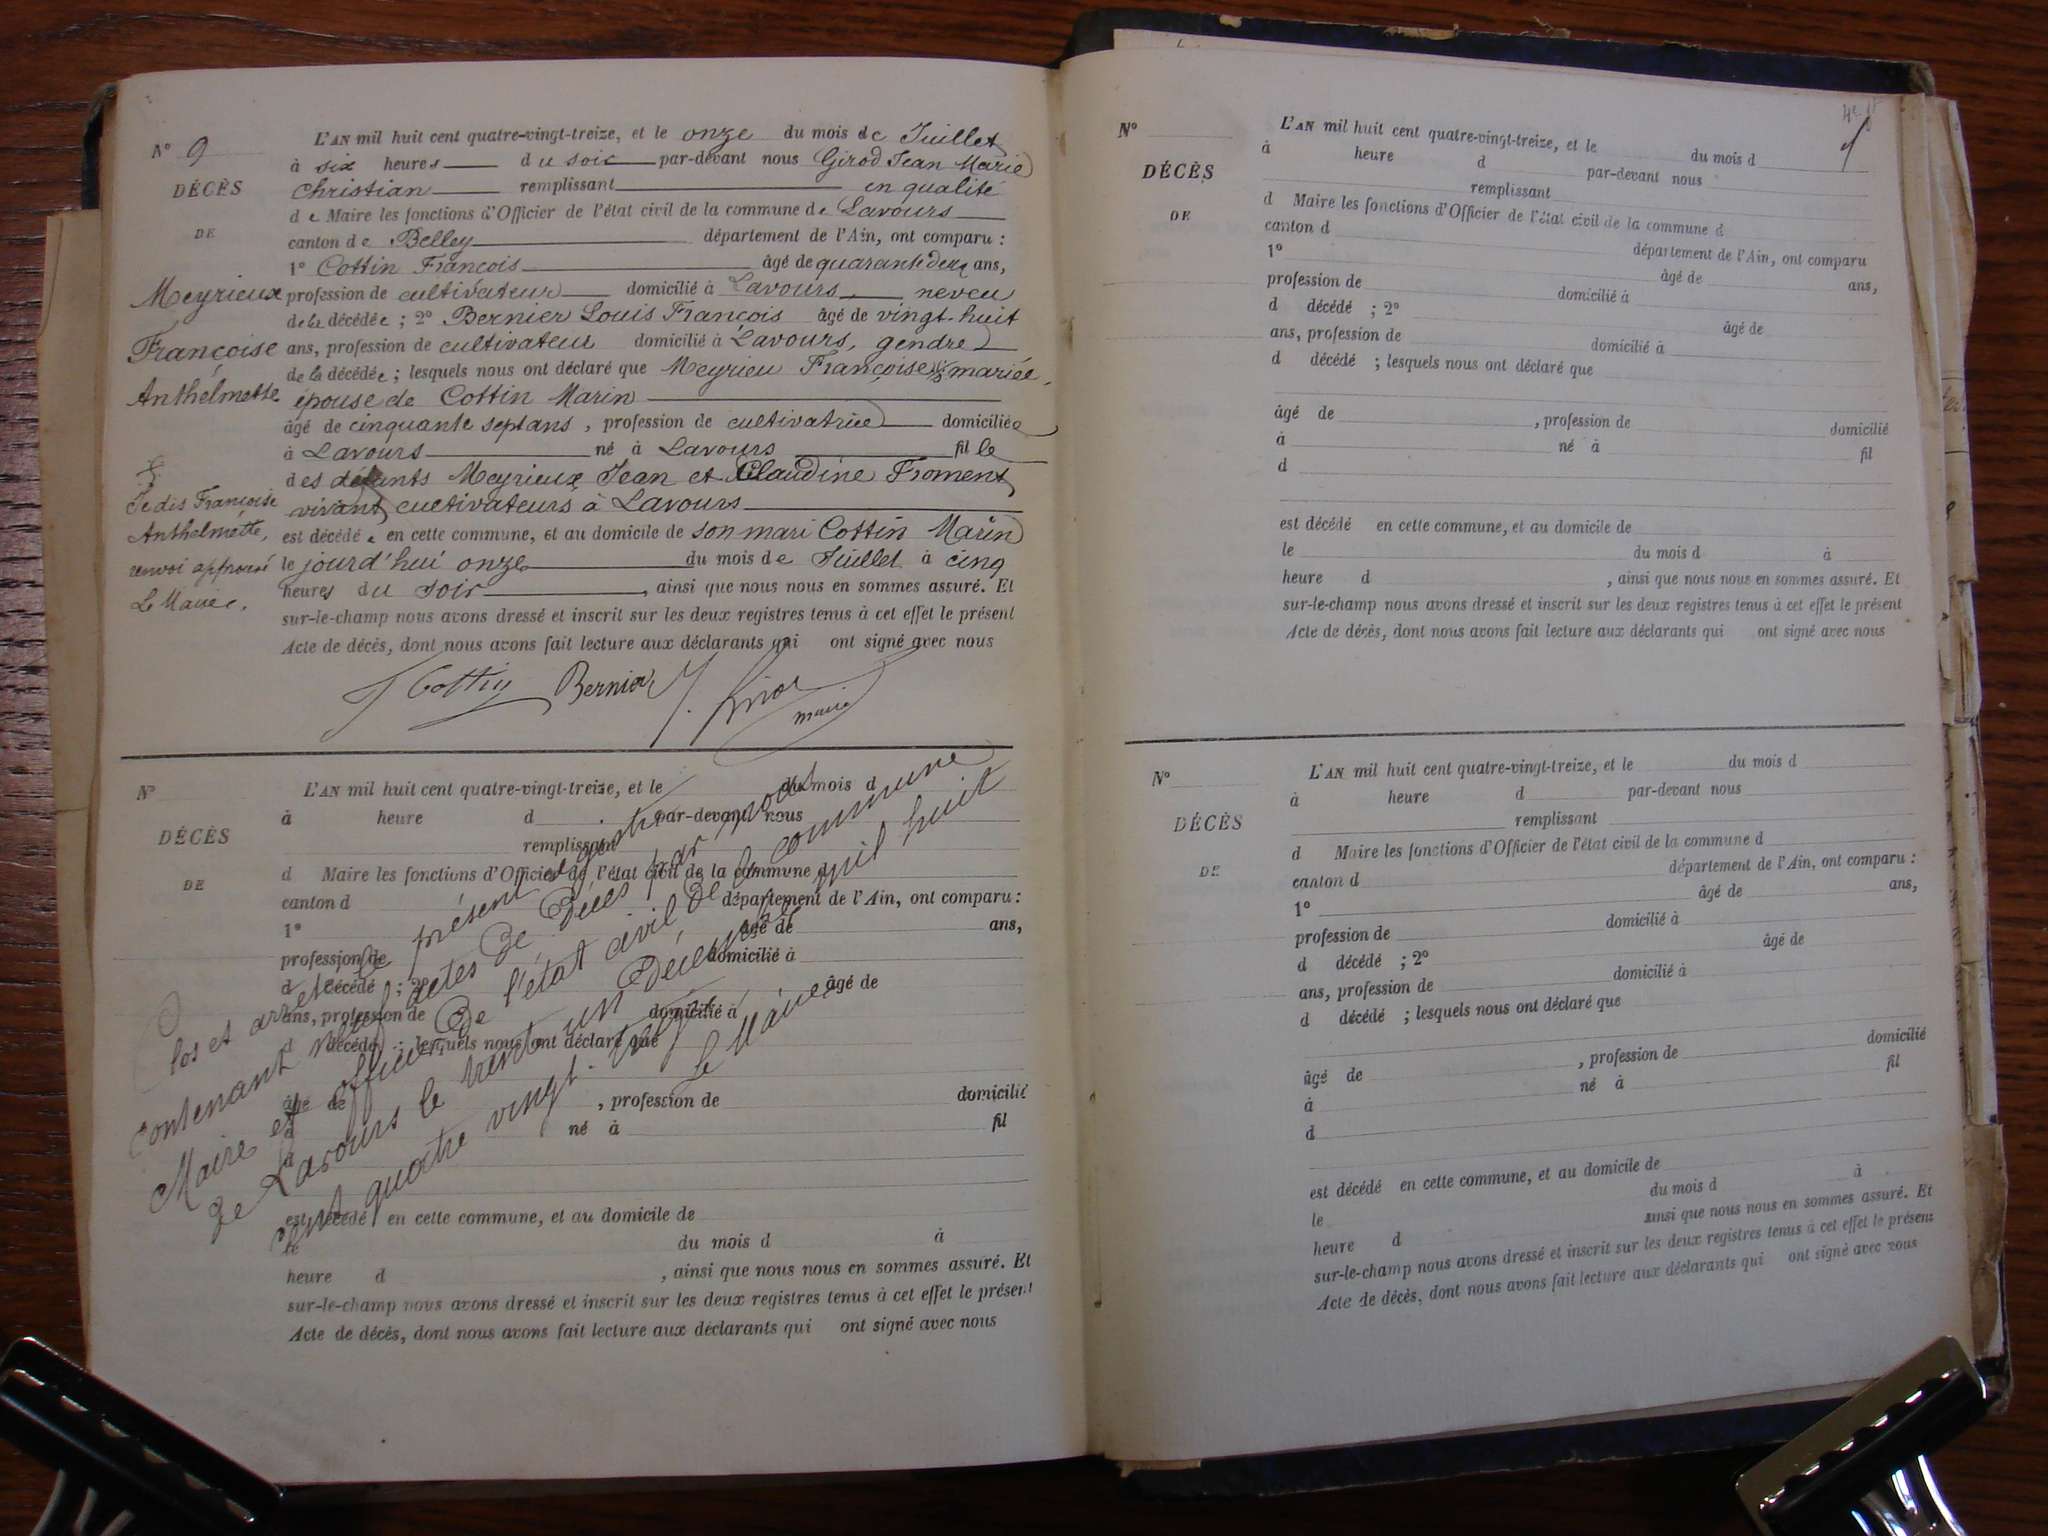 N° 9
DÉCÈS
DE
Meyrieux
Françoise
Anthelmette
Je dis Françoise
Anthelmette,
renvoi approuvé
Le Maire.
L'AN mil huit cent quatre-vingt-treize, et le onze du mois de Juillet
à six heures du soir par-devant nous Girod Jean Marie
Christian remplissant en qualité
de Maire les fonctions d'Officier de l'état civil de la commune de Lavours
canton de Belley département de l'Ain, ont comparu :
1° Cottin François âgé de quarante deux ans,
profession de cultivateur domicilié à Lavours neveu
de la décédée ; 2° Bernier Louis François âgé de vingt-huit
ans, profession de cultivateur domicilié à Lavours, gendre
de la décédée ; lesquels nous ont déclaré que Meyrieu Françoise mariée,
épouse de Cottin Marin
âgé de cinquante sept ans, profession de cultivatrice domiciliée
à Lavours né à Lavours fille
des défunts Meyrieux Jean et Claudine Froment
vivant cultivateurs à Lavours
est décédée en cette commune, et au domicile de son mari Cottin Marin
le jourd'hui onze du mois de Juillet à cinq
heures du soir, ainsi que nous nous en sommes assuré. Et
sur-le-champ nous avons dressé et inscrit sur les deux registres tenus à cet effet le présent
Acte de décès, dont nous avons fait lecture aux déclarants qui ont signé avec nous
Cottin Bernier J. Girod
maire
N°
DÉCÈS
DE
L'AN mil huit cent quatre-vingt-treize, et le du mois d
à heure d par-devant nous
remplissant
d Maire les fonctions d'Officier de l'état civil de la commune d
canton d département de l'Ain, ont comparu :
1° âgé de ans,
profession de domicilié à
d décédé ; 2° âgé de
ans, profession de domicilié à
d décédé ; lesquels nous ont déclaré que
âgé de , profession de domicilié
à né à fil
d
est décédé en cette commune, et au domicile de
le du mois d à
heure d , ainsi que nous nous en sommes assuré. Et
sur-le-champ nous avons dressé et inscrit sur les deux registres tenus à cet effet le présent
Acte de décès, dont nous avons fait lecture aux déclarants qui ont signé avec nous
Clos et arrêté le présent registre
contenant neuf actes de Décès par nous
Maire et officier de l'état civil de la commune
de Lavours le trente un Décembre mil huit
cent quatre vingt-treize
Le Maire
N°
DÉCÈS
DE
L'AN mil huit cent quatre-vingt-treize, et le du mois d
à heure d par-devant nous
remplissant
d Maire les fonctions d'Officier de l'état civil de la commune d
canton d département de l'Ain, ont comparu
1° âgé de ans,
profession de domicilié à
d décédé ; 2° âgé de
ans, profession de domicilié à
d décédé ; lesquels nous ont déclaré que
âgé de , profession de domicilié
à né à fil
d
est décédé en cette commune, et au domicile de
le du mois d à
heure d , ainsi que nous nous en sommes assuré. Et
sur-le-champ nous avons dressé et inscrit sur les deux registres tenus à cet effet le présent
Acte de décès, dont nous avons fait lecture aux déclarants qui ont signé avec nous
N°
DÉCÈS
DE
L'AN mil huit cent quatre-vingt-treize, et le du mois d
à heure d par-devant nous
remplissant
d Maire les fonctions d'Officier de l'état civil de la commune d
canton d département de l'Ain, ont comparu :
1° âgé de ans,
profession de domicilié à
d décédé ; 2° âgé de
ans, profession de domicilié à
d décédé ; lesquels nous ont déclaré que
âgé de , profession de domicilié
à né à fil
d
est décédé en cette commune, et au domicile de
le du mois d à
heure d ainsi que nous nous en sommes assuré. Et
sur-le-champ nous avons dressé et inscrit sur les deux registres tenus à cet effet le présent
Acte de décès, dont nous avons fait lecture aux déclarants qui ont signé avec nous